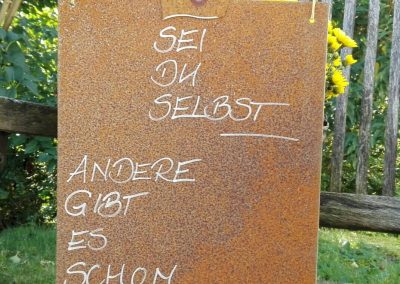 SEI
DU
SELBST
ANDERE
GIBT
ES
SCHON